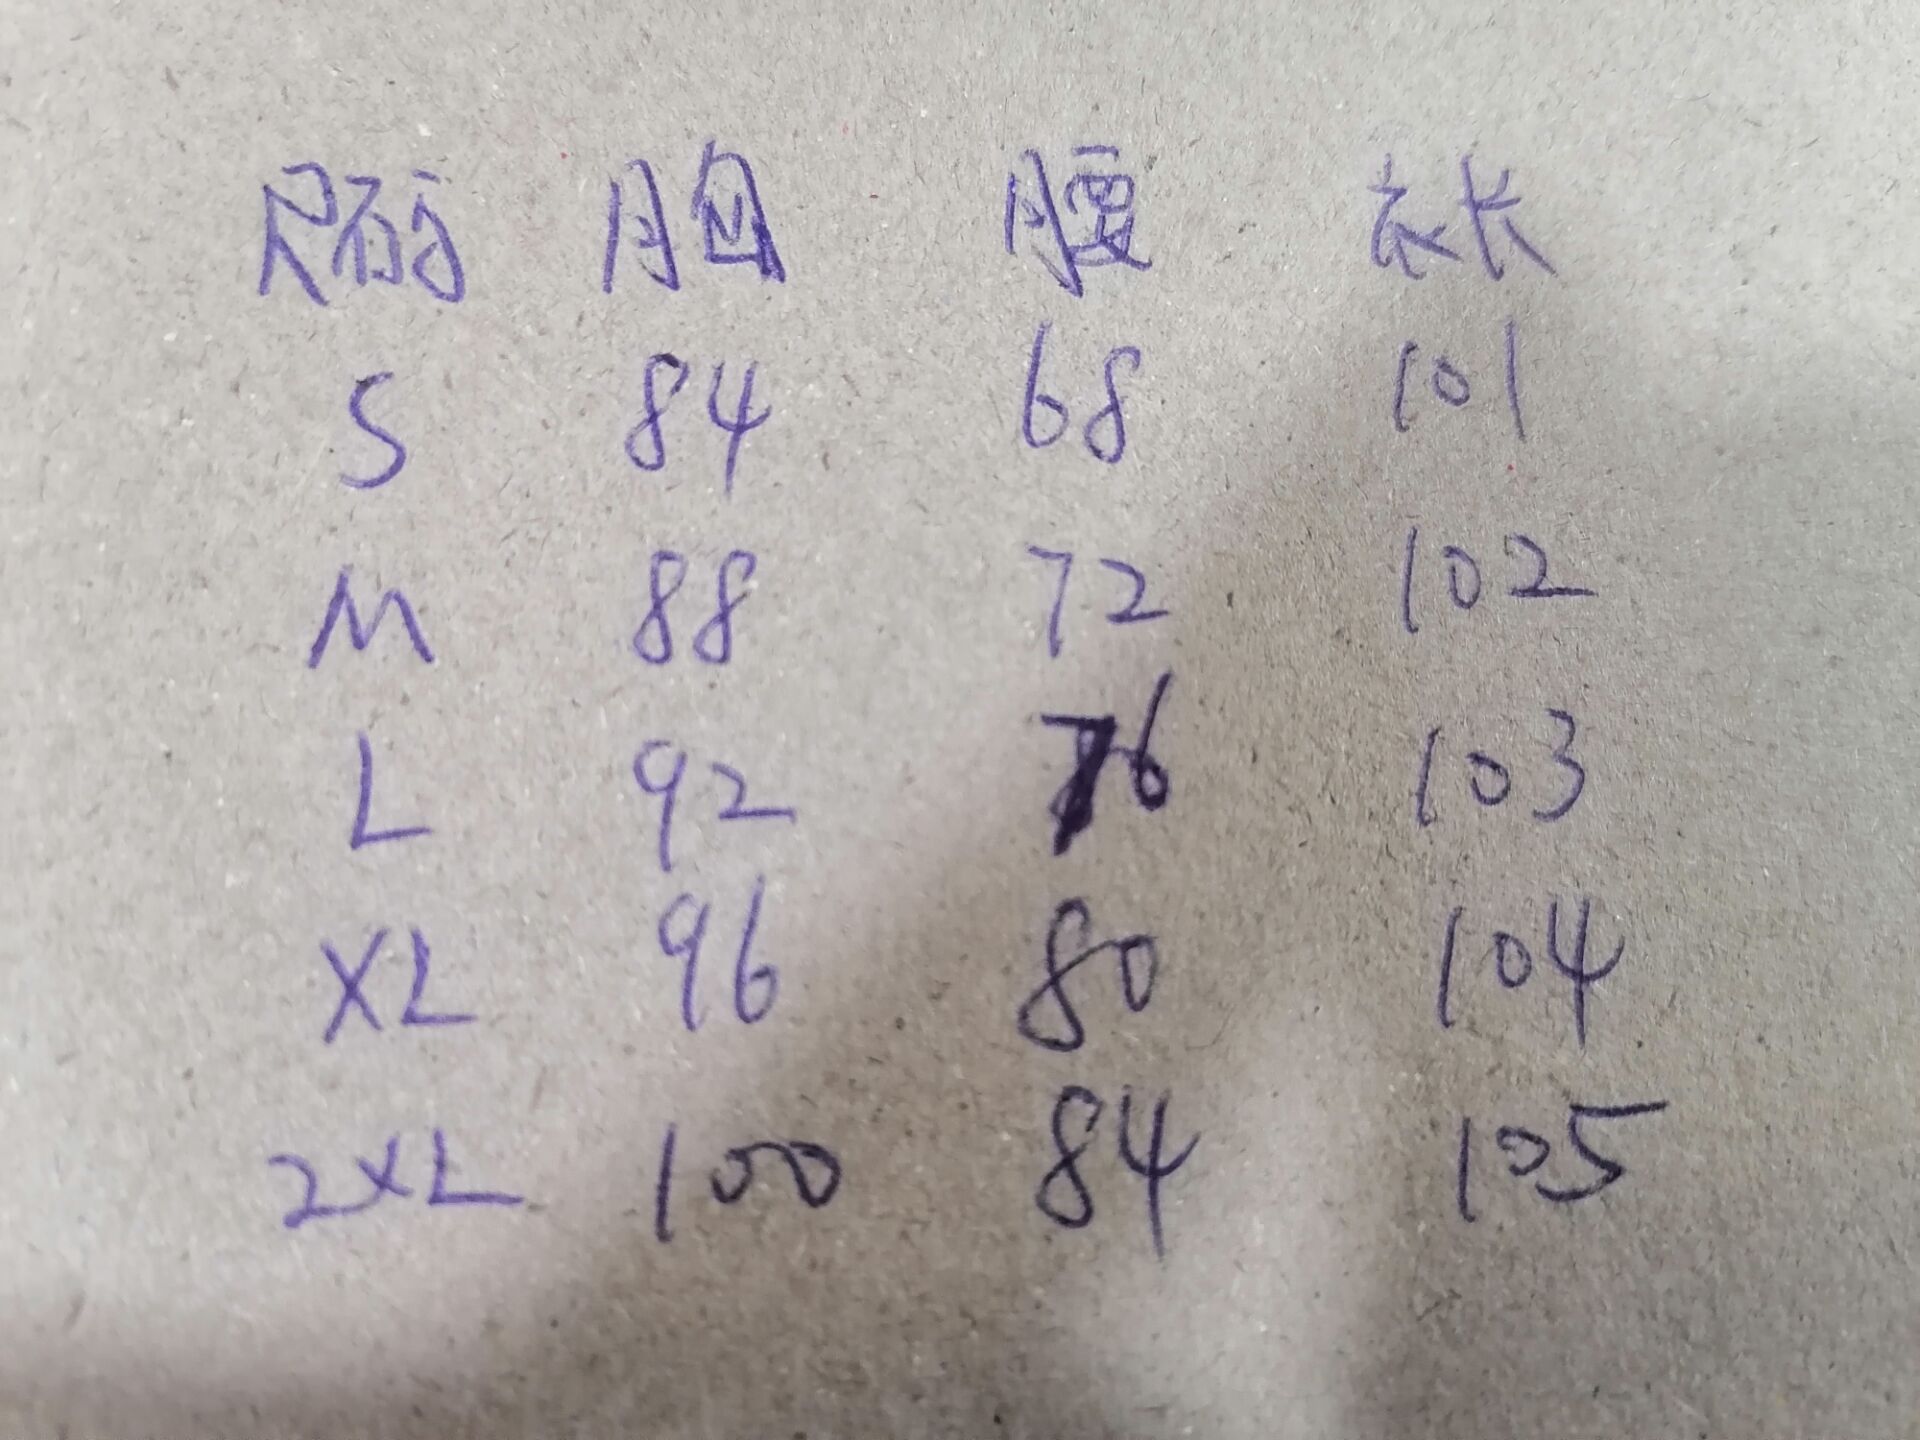 尺码 胸 腰 衣长
S 84 68 101
M 88 72 102
L 92 76 103
XL 96 80 104
2XL 100 84 105